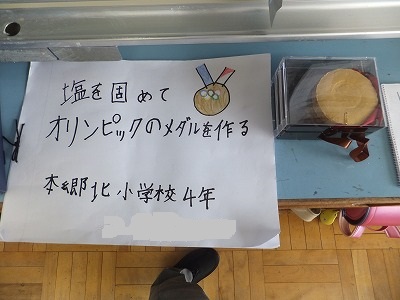 塩を固めて
オリンピックのメダルを作る
本郷北小学校4年